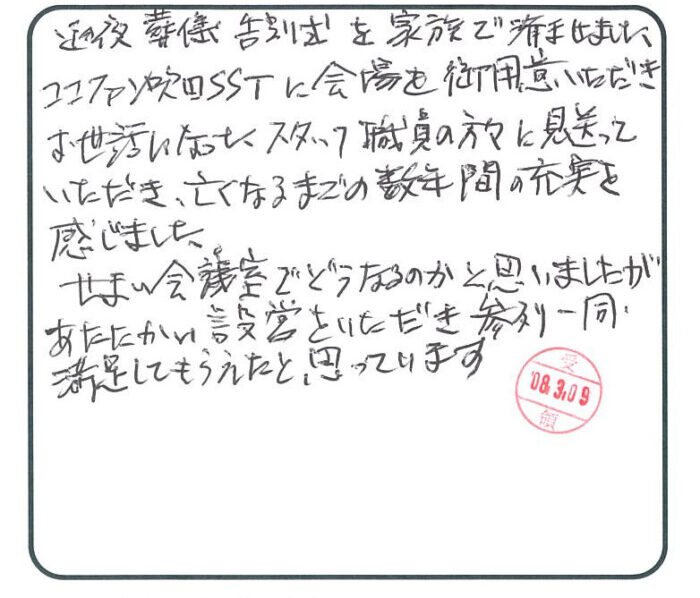 通夜 葬儀 告別式を家族で済ませました、
ココファン吹田SSTに会場を御用意いただき
お世話になった、スタッフ職員の方々に見送って
いただき、亡くなるまでの数年間の充実を
感じました。
せまい会議室でどうなるのかと思いましたが
あたたかい設営をいただき参列一同、
満足してもらえたと思っています
受
'08.3.09
領